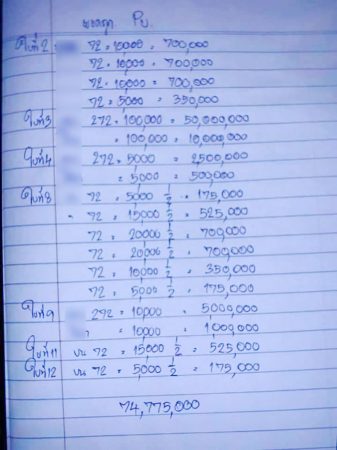 ใบที่2 72 = 10,000 = 700,000
72 = 10,000 = 700,000
72 = 10,000 = 700,000
72 = 5000 = 350,000
ใบที่3 272 = 100,000 = 50,000,000
= 100,000 = 10,000,000
ใบที่4 272 = 5000 = 2,500,000
= 5000 = 500,000
ใบที่8 72 = 5000 1/2 = 175,000
72 = 15,000 1/2 = 525,000
72 = 20,000 1/2 = 700,000
72 = 20,000 1/2 = 700,000
72 = 10,000 1/2 = 350,000
72 = 5,000 1/2 = 175,000
ใบที่9 292 = 10,000 = 5,000,000
= 10,000 = 1,000,000
ใบที่11 บน 72 = 15,000 1/2 = 525,000
ใบที่12 บน 72 = 5,000 1/2 = 175,000
74,775,000